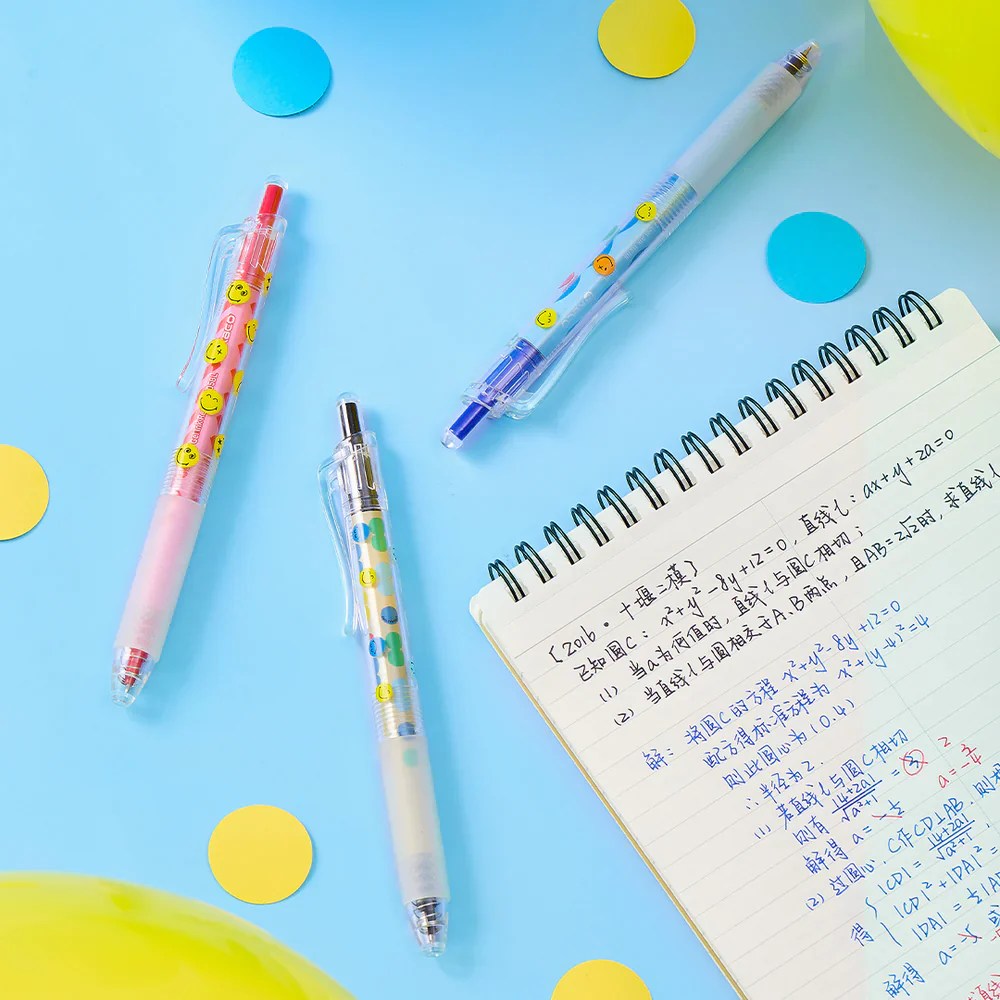 {2016·十堰二模}
已知圆C: x²+y²-8y+12=0, 直线l: ax+y+2a=0
(1) 当a为何值时, 直线l与圆C相切;
(2) 当直线l与圆相交于A.B两点, 且AB=2√2时, 求直线l
解: 将圆C的方程 x²+y²-8y+12=0
配方得标准方程为 x²+(y-4)²=4
则此圆心为(0.4)
∴半径为2.
(1) 若直线l与圆C相切
则有 |4+2a|/√a²+1 = 3 2
解得 a= a=-3/4
(2) 过圆心.C作CD⊥AB.则
|CD| = |4+2a|/√a²+1,
|CD|²+|DA|²=
得 |DA| = ½|A
解得 a=